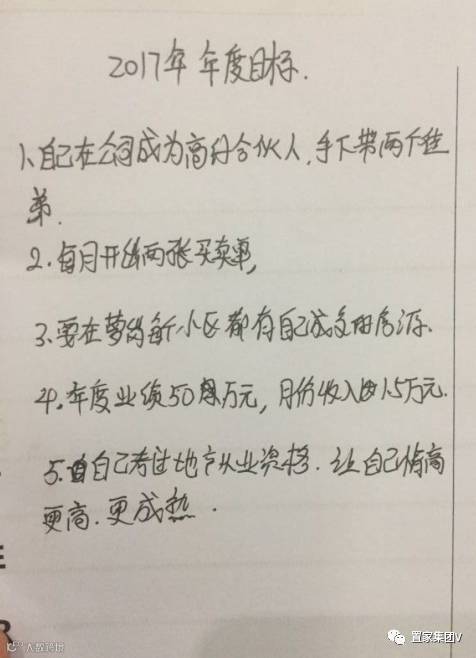 2017年 年度目标.
1、自己在公司成为高级合伙人,手下带两个徒
弟.
2.每月开单两张买卖单,
3.要在萝岗每个小区都有自己成交的房源.
4.年度业绩50万元,月份收入1.5万元.
5.自己考过地产从业资格.让自己情商
更高.更成熟.
置家集团V
大数跨境
E
R